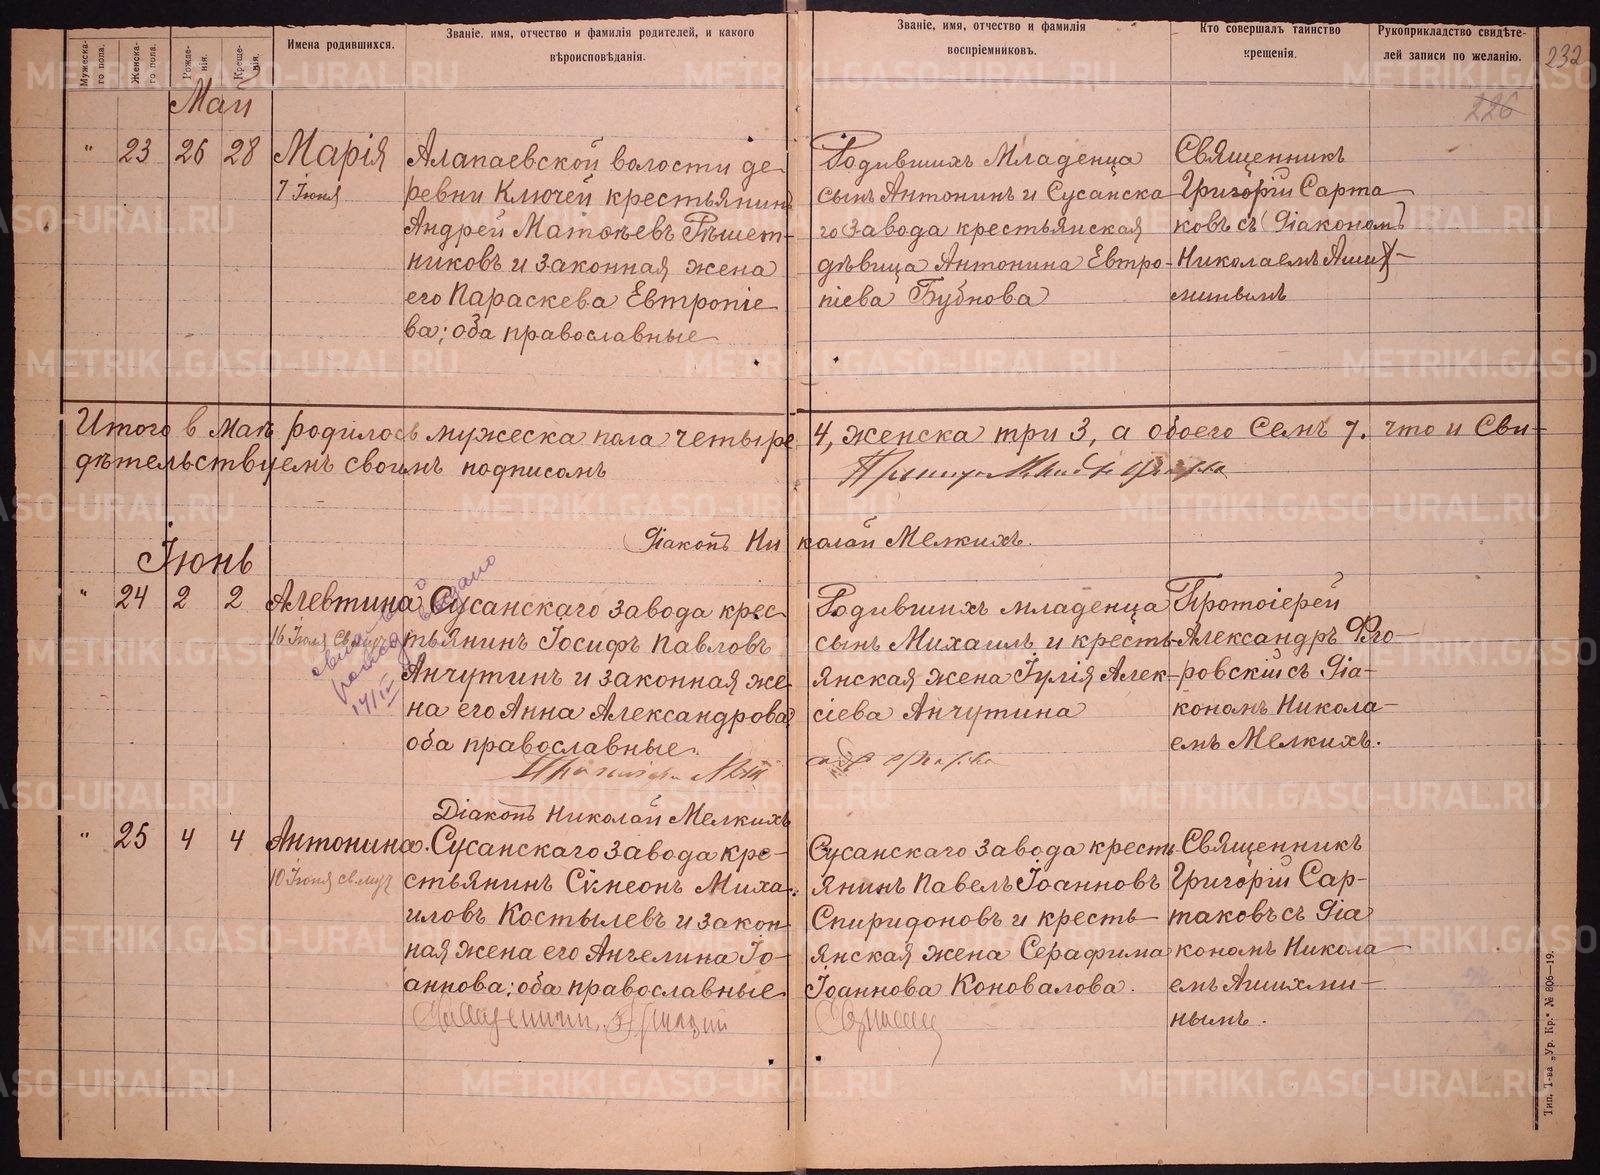 Мужеска-
го пола.
Женска-
го пола.
Рожде-
нія.
Креще-
нія.
Имена родившихся.
Званіе, имя, отчество и фамилія родителей, и какого
вѣроисповѣданія.
Званіе, имя, отчество и фамилія
воспріемниковъ.
Кто совершалъ таинство
крещенія.
Рукоприкладство свидѣте-
лей записи по желанію.
232
226
Май
" 23 26 28 Марія
7 Іюня
Алапаевской волости де-
ревни Ключей крестьянинъ
Андрей Матѳѣевъ Рѣшет-
никовъ и законная жена
его Параскева Евтропіе
ва; оба православные
Родившихъ Младенца
сынъ Антонинъ и Сусанска
го завода крестьянская
дѣвица Антонина Евтро-
піева Бубнова
Священникъ
Григорій Сарта
ковъ съ Діакономъ
Николаемъ Аших-
минымъ
Итого в Маѣ родилось мужеска пола четыре 4, женска три 3, а обоего Семь 7. что и Сви-
дѣтельствуемъ своимъ подписомъ
Діаконъ Николай Мелкихъ.
Іюнь
" 24 2 2 Алевтина
16 Іюля
Сусанскаго завода крес-
тьянинъ Іосифъ Павловъ
Анчутинъ и законная же
на его Анна Александрова
оба православные.
Діаконъ Николай Мелкихъ
Родившихъ младенца
сынъ Михаилъ и кресть-
янская жена Іулія Алек-
сіева Анчутина
Протоіерей
Александръ Фло-
ровскій съ Діа-
кономъ Никола-
емъ Мелкихъ.
" 25 4 4 Антонина.
10 Іюня
Сусанскаго завода кре-
стьянинъ Сімеонъ Миха-
иловъ Костылевъ и закон
ная жена его Ангелина Іо-
аннова; оба православные
Сусанскаго завода кресть
янинъ Павелъ Іоанновъ
Спиридоновъ и кресть-
янская жена Серафима
Іоаннова Коновалова.
Священникъ
Григорій Сар-
таковъ съ Діа
кономъ Никола-
емъ Ашихми-
нымъ.
Тип. Т-ва „Ур. Кр." № 806—19.
METRIKI.GASO-URAL.RU